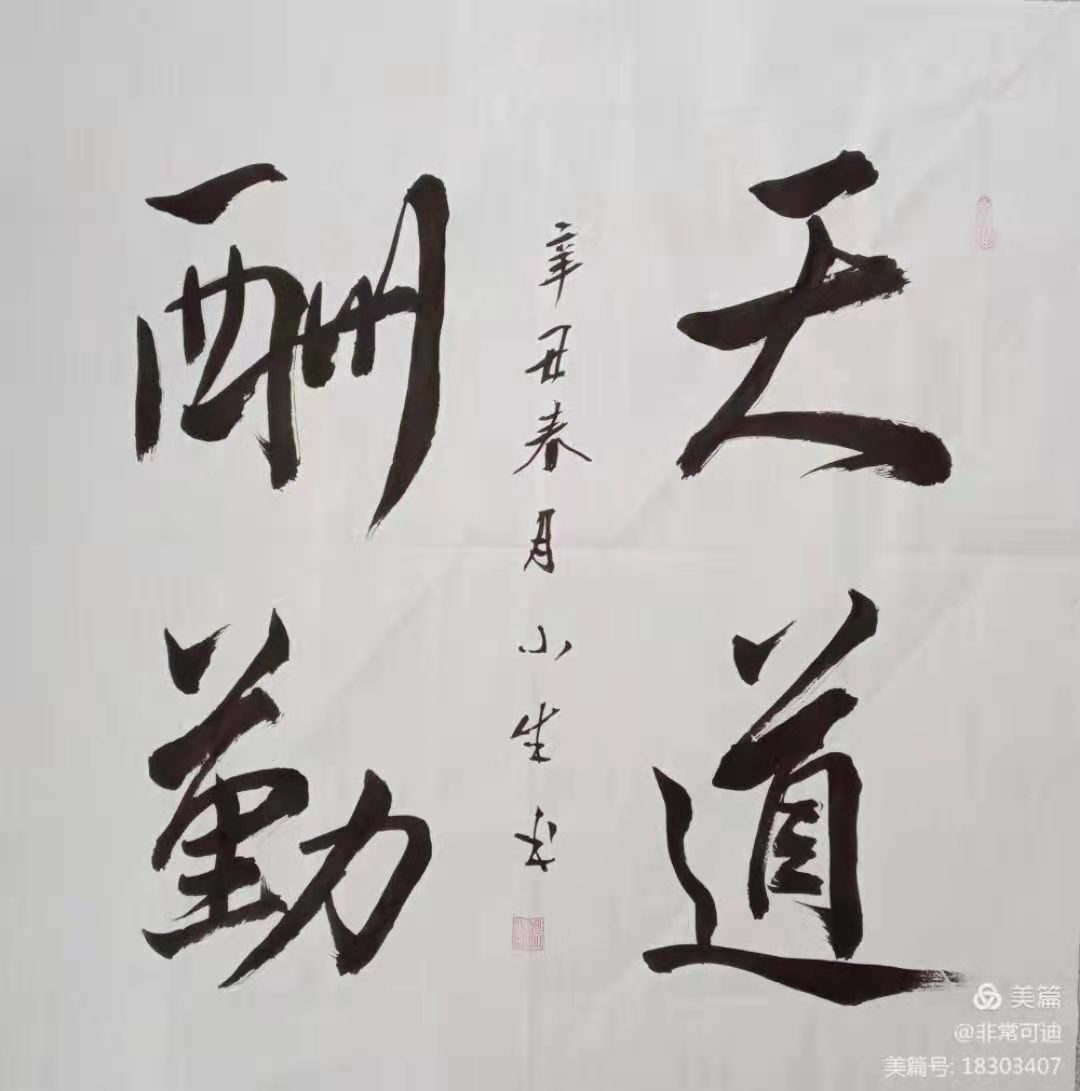 天道
酬勤
辛丑春月小生书
美篇
@非常可迪
美篇号: 18303407